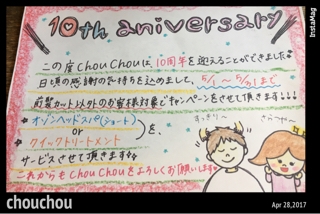 10th aniversary
この度ChouChouは、10周年を迎えることができました
日頃の感謝の気持ちを込めました、5/1～5/31まで
前髪カット以外のお客様対象でキャンペーンをさせて頂きます!!!
*オゾンヘッドスパ(ショート)
or
*クイックトリートメント
を、
サービスさせて頂きます
これからもChouChouをよろしくお願いします
すっきり～
さらつや～
chouchou
Apr 28,2017
InstaMag